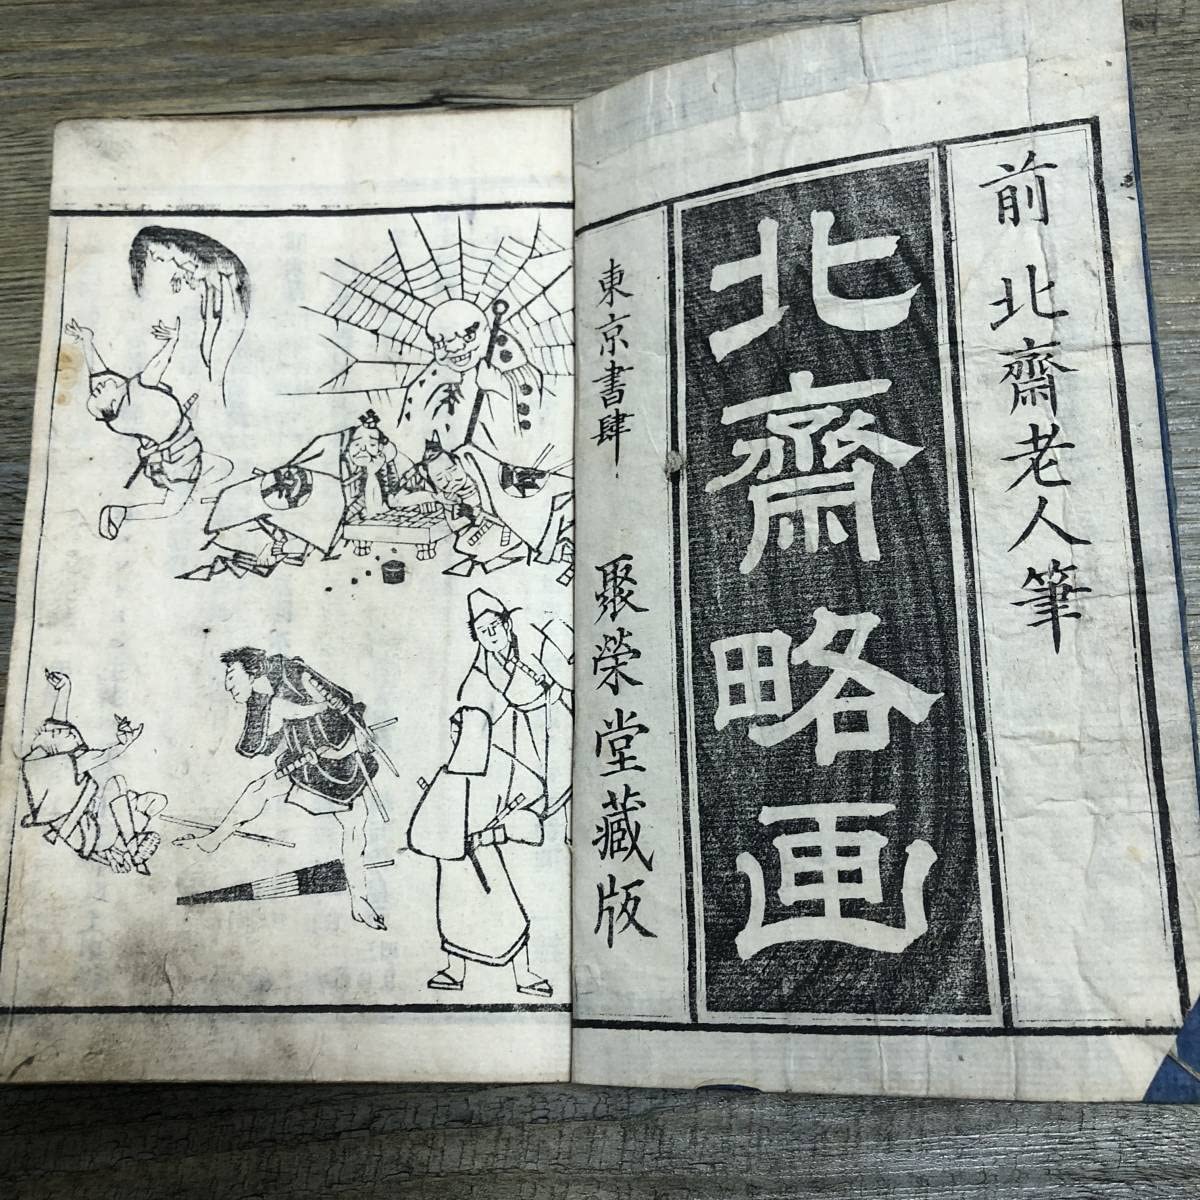 前北齋老人筆
北齋略画
東京書肆 聚榮堂藏版